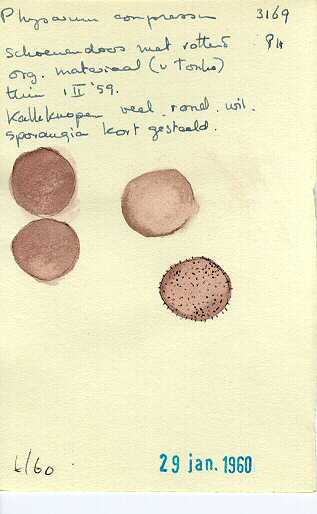 Physarum compressum 3169
schoenendoos met rottend PH
org. materiaal (v Tonko)
thuis 1 II '59.
Kalkknopen veel. rond. wit.
sporangia kort gesteeld.
1/60
29 jan. 1960